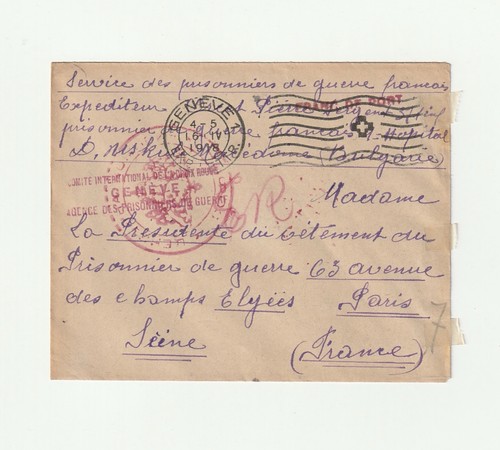 Service des prisonniers de guerre francais
Expediteur Sergent
FRANC DE PORT
prisonnier de guerre francais Hopital
D. Uskub Macedoine (Bulgarie)
GENEVE 1
4-5
10 IV
1918
EXP. LETTR.
COMITÉ INTERNATIONAL DE LA CROIX ROUGE
GENÈVE
AGENCE DES PRISONNIERS DE GUERRE
Madame
La Presidente du Vétement du
Prisonnier de guerre 63 avenue
des champs Elyëes Paris
Séine (France)
7